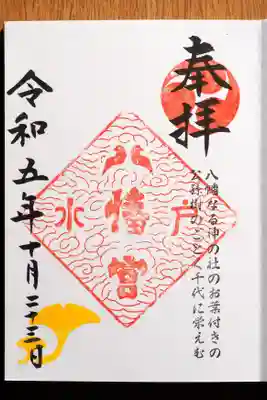 奉拝
八幡なる神の社のお葉付きの
公孫樹のごとく千代に栄えむ
八幡宮
水戸
令和五年十月二十三日